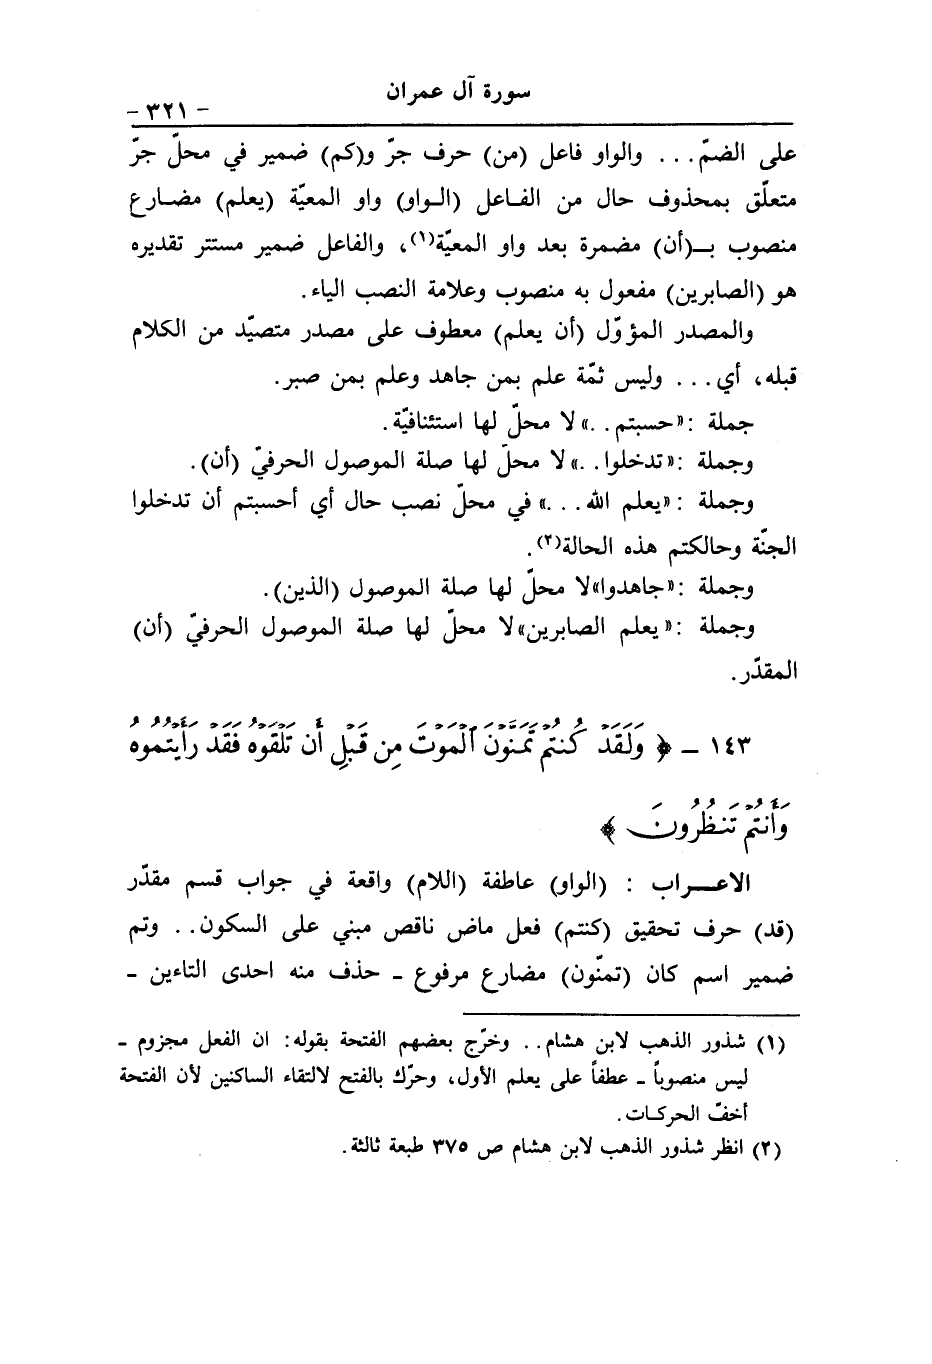 سورة آل عمران
- ٣٢١ -
على الضمّ... والواو فاعل (من) حرف جرّ و(كم) ضمير في محلّ جرّ
متعلّق بمحذوف حال من الفاعل (الواو) واو المعيّة (يعلم) مضارع
منصوب بـ(أن) مضمرة بعد واو المعيّة(١)، والفاعل ضمير مستتر تقديره
هو (الصابرين) مفعول به منصوب وعلامة النصب الياء.
والمصدر المؤوّل (أن يعلم) معطوف على مصدر متصيّد من الكلام
قبله، أي... وليس ثمّة علم بمن جاهد وعلم بمن صبر.
جملة :«حسبتم..» لا محلّ لها استئنافيّة.
وجملة :«تدخلوا..» لا محلّ لها صلة الموصول الحرفيّ (أن).
وجملة :«يعلم الله...» في محلّ نصب حال أي أحسبتم أن تدخلوا
الجنّة وحالكتم هذه الحالة(٢).
وجملة :«جاهدوا» لا محلّ لها صلة الموصول (الذين).
وجملة :«يعلم الصابرين» لا محلّ لها صلة الموصول الحرفيّ (أن)
المقدّر.
١٤٣ - ﴿ وَلَقَدْ كُنتُمْ تَمَنَّوْنَ ٱلْمَوْتَ مِن قَبْلِ أَن تَلْقَوْهُ فَقَدْ رَأَيْتُمُوهُ
وَأَنتُمْ تَنظُرُونَ ﴾
الاعـراب : (الواو) عاطفة (اللام) واقعة في جواب قسم مقدّر
(قد) حرف تحقيق (كنتم) فعل ماض ناقص مبني على السكون.. وتم
ضمير اسم كان (تمنّون) مضارع مرفوع - حذف منه احدى التاءين -
(١) شذور الذهب لابن هشام.. وخرّج بعضهم الفتحة بقوله: ان الفعل مجزوم -
ليس منصوباً - عطفاً على يعلم الأول، وحرّك بالفتح لالتقاء الساكنين لأن الفتحة
أخفّ الحركات.
(٢) انظر شذور الذهب لابن هشام ص ٣٧٥ طبعة ثالثة.